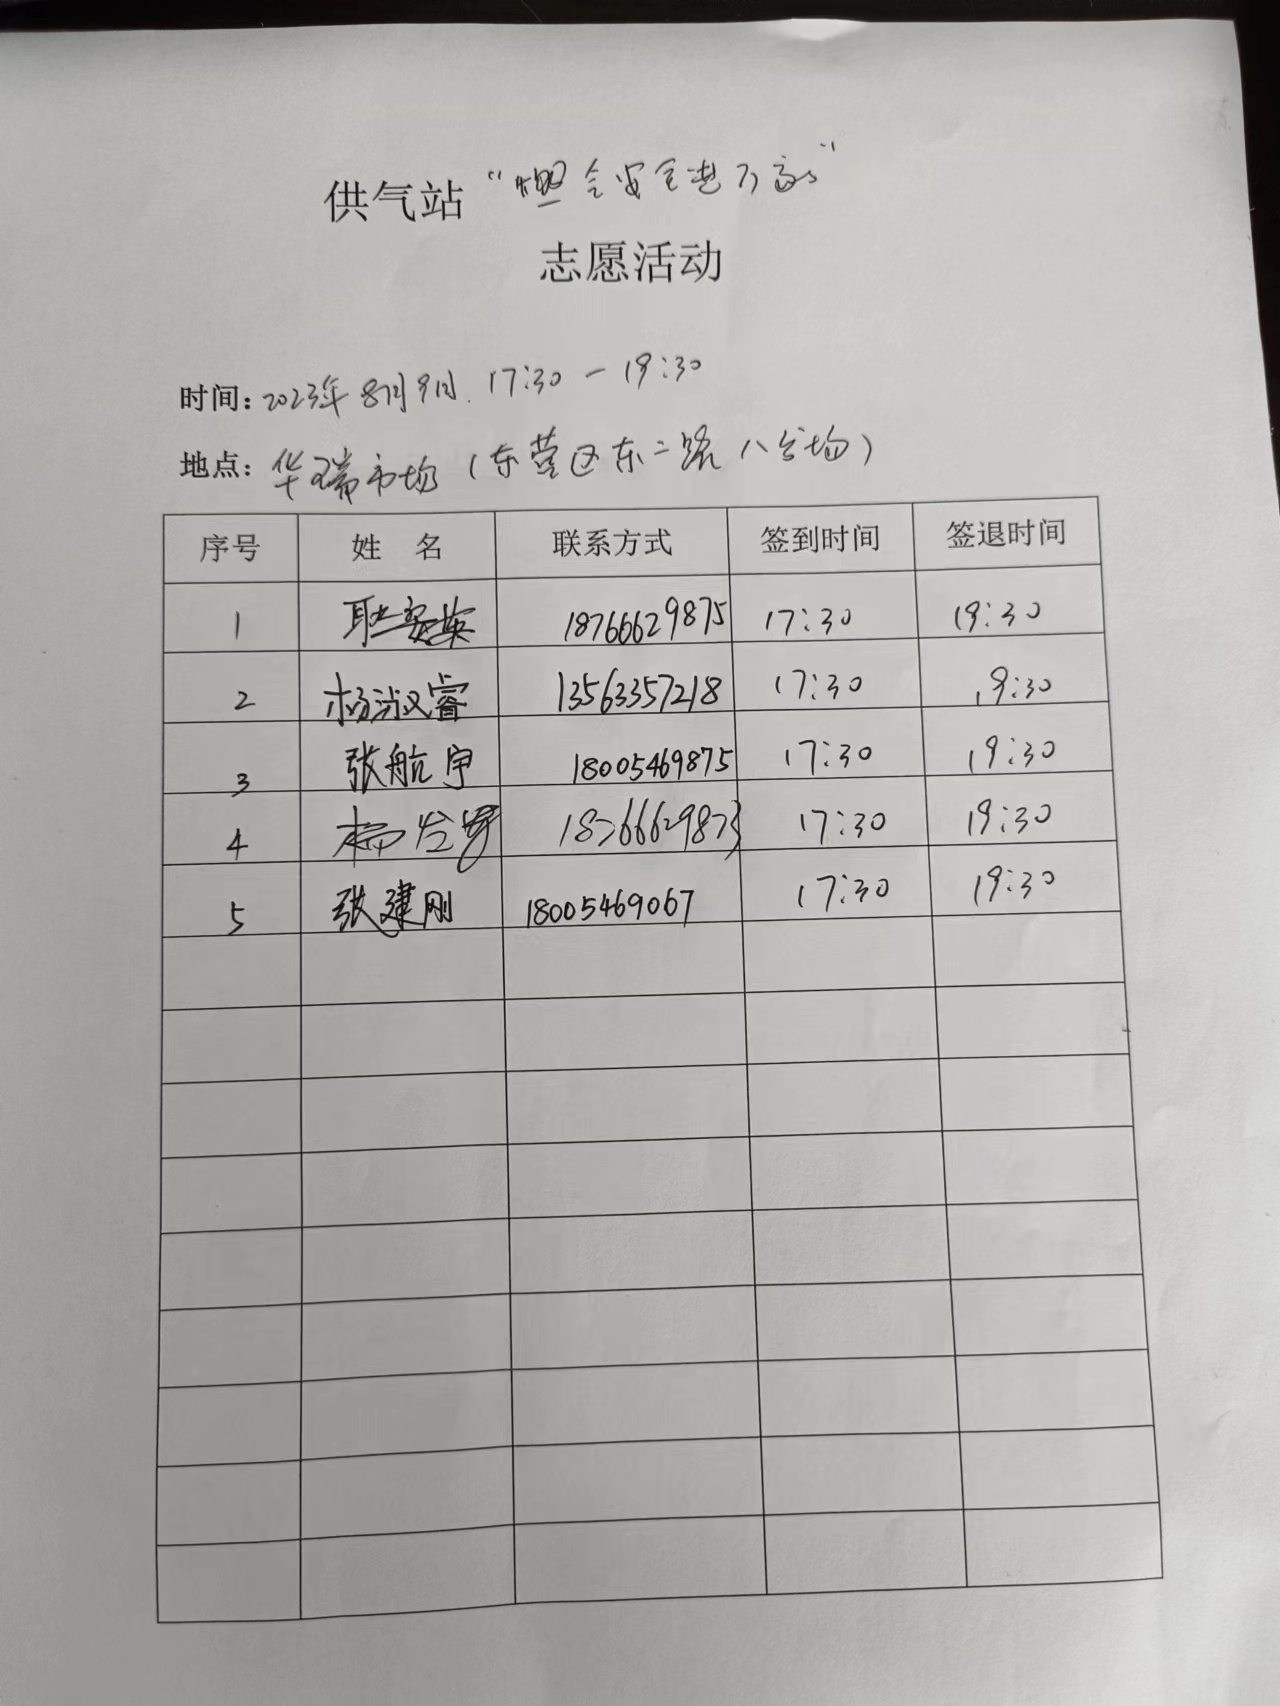 供气站“燃气安全进万家”
志愿活动
时间：2023年8月9日 17:30－19:30
地点：华瑞市场（东营区东二路八分场）
序号 姓 名 联系方式 签到时间 签退时间
1 18766629875 17:30 19:30
2 杨淑睿 13563357218 17:30 19:30
3 张航宇 18005469875 17:30 19:30
4 18766629873 17:30 19:30
5 张建刚 18005469067 17:30 19:30